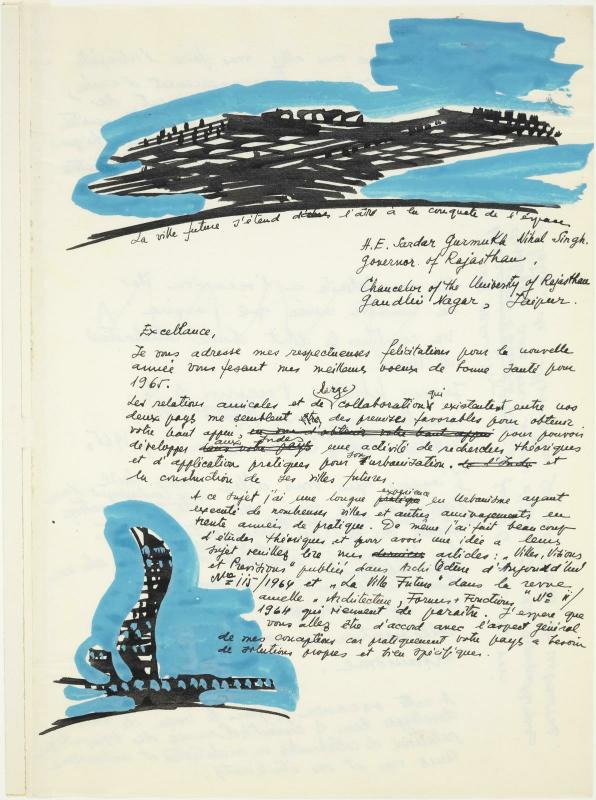 La ville future s'étend dans l'être à la conquete de l'espace.
H.E. Sardar Gurmukh Nihal Singh.
Governor of Rajasthan,
Chancelor of the University of Rajasthan
Gandhi Nagar, Jaipur.
Excellance,
Je vous adresse mes respectueuses felicitations pour la nouvelle
année vous fesant mes meilleurs voeux de bonne santé pour
1965.
Les relations amicales et de large collaboration qui existent entre nos
deux pays me semblent être des premises favorables pour obtenir
votre haut appui en vous d'obtenir votre haut appui pour pouvoir
développer dans votre pays aux Indes une activité de recherches théoriques
et d'application pratiques pour son l'urbanisation. de l'Inde et
la construction de ses villes futures.
A ce sujet j'ai une longue pratique experience en Urbanisme ayant
executé de nombreuses villes et autres amenagements en
trente années de pratique. De même j'ai fait beaucoup
d'études théoriques et pour avoir une idée a leur
sujet veuillez lire mes derniers articles: „Villes, Visions
et Previsions" publiés dans Architecture d'Aujourd'hui
115/1964 et „La Ville Future" dans la revue
anuelle „Architecture, Formes + Fonctions" No 11/
1964 qui viennent de paraitre. J'espère que
vous allez être d'accord avec l'aspect général
de mes conceptions car pratiquement votre pays a besoin
de solutions propres et bien spécifiques.